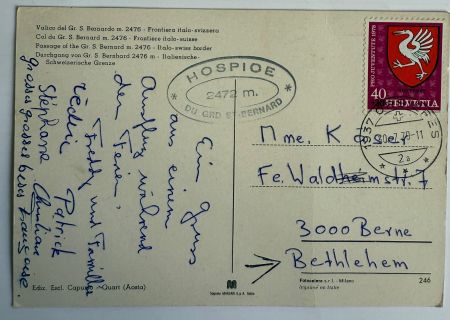 Valico del Gr. S. Bernardo m. 2476 - Frontiera italo-svizzera
Col du Gr. S. Bernard m. 2476 - Frontière italo-suisse
Passage of the Gr. S. Bernard m. 2476 - Italo-swiss border
Durchgang von Gr. Bernhard 2476 m - Italienische-
Schweizerische Grenze
HOSPICE
2472 m.
DU GRD ST-BERNARD
PRO JUVENTUTE 1978
40
HELVETIA
1937
-11
2a
Ein Gruss
aus einem
Ausflug während
den Ferien.
Freddy und Familie
Cédric Patrick
Stéphane Christian
grosses grosses
Mme. K
Fe. Waldheimstr. 7
3000 Berne
Bethlehem
Ediz. Escl. Caputo - Quart (Aosta)
Fotocolore s.r.l. - Milano
Imprimé en Italie
246